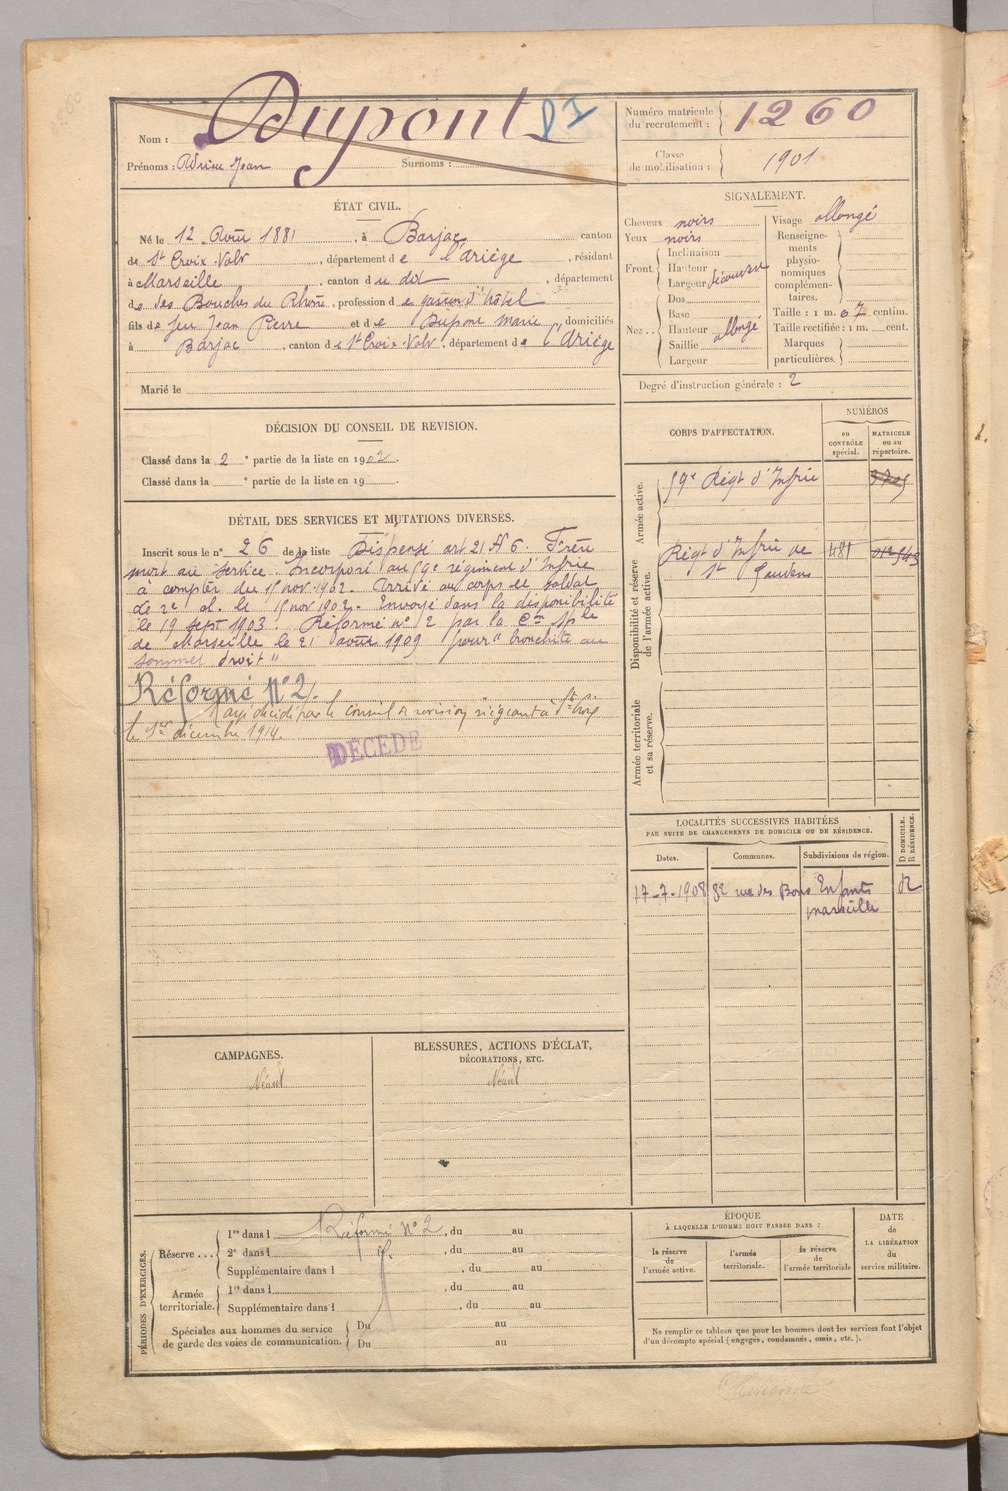 Nom : Dupont
Prénoms : Jean Surnoms :
Numéro matricule du recrutement : 1260
Classe de mobilisation : 1901
ÉTAT CIVIL.
Né le 12 Août 1881, à Barjac canton
de St Croix-Volv, département de l'Ariège, résidant
à Marseille, canton du dit, département
des Bouches du Rhône, profession de garçon d'hôtel
fils de feu Jean Pierre et de Dupont Marie, domiciliés
à Barjac, canton de St Croix-Volv, département de l'Ariège
Marié le
SIGNALEMENT.
Cheveux noirs
Yeux noirs
Front. Inclinaison
Hauteur
Largeur découvert
Nez. Dos
Base
Hauteur allongé
Saillie
Largeur
Visage allongé
Renseignements physionomiques complémentaires.
Taille : 1 m. 67 centim.
Taille rectifiée : 1 m. cent.
Marques particulières.
Degré d'instruction générale : 2
DÉCISION DU CONSEIL DE REVISION.
Classé dans la 2e partie de la liste en 1902.
Classé dans la e partie de la liste en 19 .
DÉTAIL DES SERVICES ET MUTATIONS DIVERSES.
Inscrit sous le n° 26 de la liste Dispensé art 21 § 6. Frère
mort au service. Incorporé au 59e régiment d'Infrie
à compter du 15 nov. 1902. Arrivé au corps et soldat
de 2e cl. le 15 nov 1902. Envoyé dans la disponibilité
le 19 sept 1903. Réformé n° 2 par la Con Sple
de Marseille le 21 août 1909 pour "bronchite au
sommet droit"
Réformé N° 2.
décidé par le conseil de revision siégeant à Ste Croix
le 1er décembre 1914.
DÉCÉDÉ
CORPS D'AFFECTATION.
NUMÉROS
OU CONTRÔLE spécial.
MATRICULE ou au répertoire.
Armée active.
59e Régt d'Infrie
Disponibilité et réserve de l'armée active.
Régt d'Infrie de 481
St Gaudens
Armée territoriale et sa réserve.
LOCALITÉS SUCCESSIVES HABITÉES
PAR SUITE DE CHANGEMENTS DE DOMICILE OU DE RÉSIDENCE.
Dates. Communes. Subdivisions de région. D DOMICILE. R RÉSIDENCE.
17-7-1908 82 rue des Bons Enfants R
Marseille
CAMPAGNES.
Néant
BLESSURES, ACTIONS D'ÉCLAT,
DÉCORATIONS, ETC.
Néant
PÉRIODES D'EXERCICES.
Réserve... 1re dans l Réformé N° 2, du au
2e dans l , du au
Supplémentaire dans l , du au
Armée territoriale. 1re dans l , du au
Supplémentaire dans l , du au
Spéciales aux hommes du service de garde des voies de communication. Du au
Du au
ÉPOQUE
À LAQUELLE L'HOMME DOIT PASSER DANS :
la réserve de l'armée active.
l'armée territoriale.
la réserve de l'armée territoriale
DATE de LA LIBÉRATION du service militaire.
Ne remplir ce tableau que pour les hommes dont les services font l'objet
d'un décompte spécial (engagés, condamnés, omis, etc.).